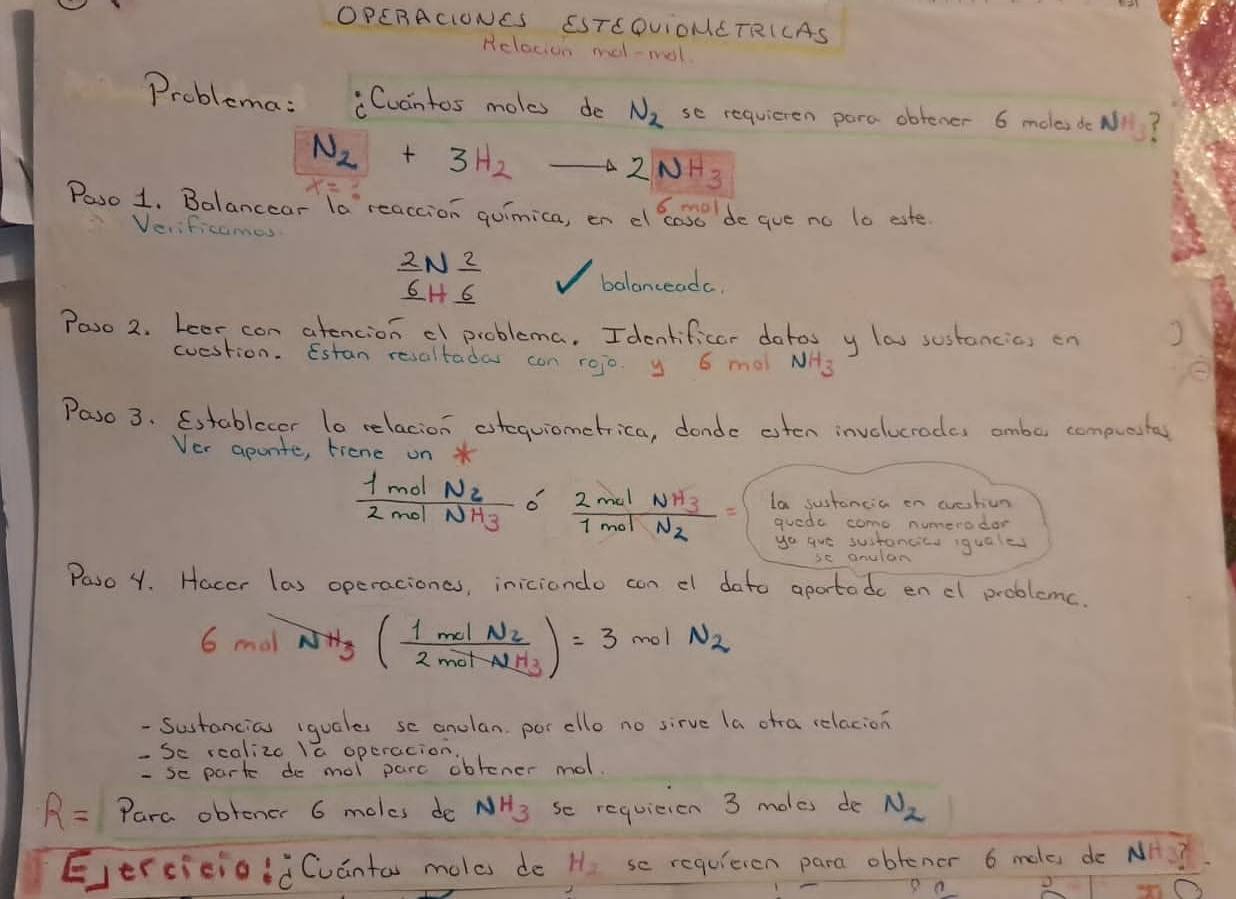 OPERACIONES ESTEQUIOMETRICAS
Relacion mol-mol.
Problema: ¿Cuántos moles de N₂ se requieren para obtener 6 moles de NH₃?
N₂ + 3H₂ → 2 NH₃
x = ? 6 mol
Paso 1. Balancear la reacción química, en el caso de que no lo este.
Verificamos.
2 N 2
6 H 6 ✓ balanceada.
Paso 2. Leer con atención el problema. Identificar datos y las sustancias en
cuestion. Estan resaltadas con rojo. y 6 mol NH₃
Paso 3. Establecer la relación estequiometrica, donde esten involucrados ambos compuestos
Ver apunte, tiene un *
1 mol N₂ / 2 mol NH₃ ó 2 mol NH₃ / 1 mol N₂ =
la sustancia en cuestiun
queda como numerador
ya que sustancias iguales
se anulan
Paso 4. Hacer las operaciones, iniciando con el dato aportado en el problema.
6 mol NH₃ (1 mol N₂ / 2 mol NH₃) = 3 mol N₂
- Sustancias iguales se anulan. por ello no sirve la otra relación
- Se realiza la operación.
- se parte de mol para obtener mol.
R = Para obtener 6 moles de NH₃ se requieren 3 moles de N₂
Ejercicio: ¿Cuántos moles de H₂ se requieren para obtener 6 moles de NH₃?